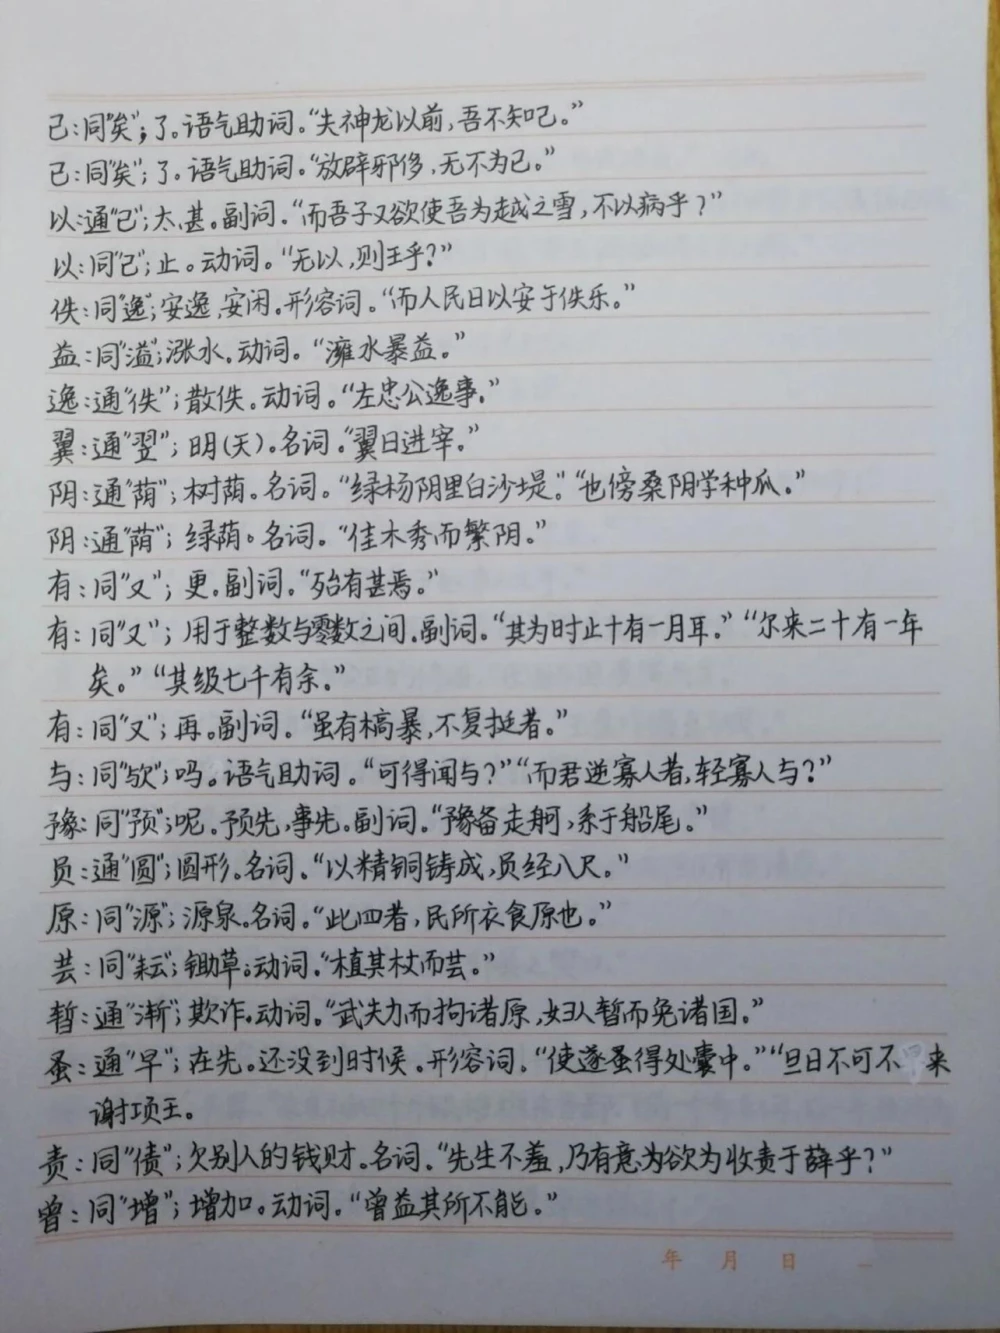 已:同“矣”;了。语气助词。“夫神龙以前,吾不知已。”
已:同“矣”;了。语气助词。“放辟邪侈,无不为已。”
以:通“已”;太、甚。副词。“而吾子又欲使吾为越之雪,不以病乎?”
以:同“已”;止。动词。“无以,则王乎?”
佚:同“逸”;安逸,安闲。形容词。“而人民日以安于佚乐。”
益:同“溢”;涨水。动词。“澭水暴益。”
逸:通“佚”;散佚。动词。“左忠公逸事。”
翼:通“翌”;明(天)。名词。“翼日进宰。”
阴:通“荫”;树荫。名词。“绿杨阴里白沙堤。”“也傍桑阴学种瓜。”
阴:通“荫”;绿荫。名词。“佳木秀而繁阴。”
有:同“又”;更。副词。“殆有甚焉。”
有:同“又”;用于整数与零数之间。副词。“其为时止十有一月耳。”“尔来二十有一年
矣。”“其级七千有余。”
有:同“又”;再。副词。“虽有槁暴,不复挺者。”
与:同“欤”;吗。语气助词。“可得闻与?”“而君逆寡人者,轻寡人与?”
豫:同“预”;呢。预先,事先。副词。“豫备走舸,系于船尾。”
员:通“圆”;圆形。名词。“以精铜铸成,员经八尺。”
原:同“源”;源泉。名词。“此四者,民所衣食原也。”
芸:同“耘”;锄草。动词。“植其杖而芸。”
暂:通“渐”;欺诈。动词。“武夫力而拘诸原,妇人暂而免诸国。”
蚤:通“早”;在先。还没到时候。形容词。“使遂蚤得处囊中。”“旦日不可不早来
谢项王。
责:同“债”;欠别人的钱财。名词。“先生不羞,乃有意为欲为收责于薛乎?”
曾:同“增”;增加。动词。“曾益其所不能。”
年 月 日